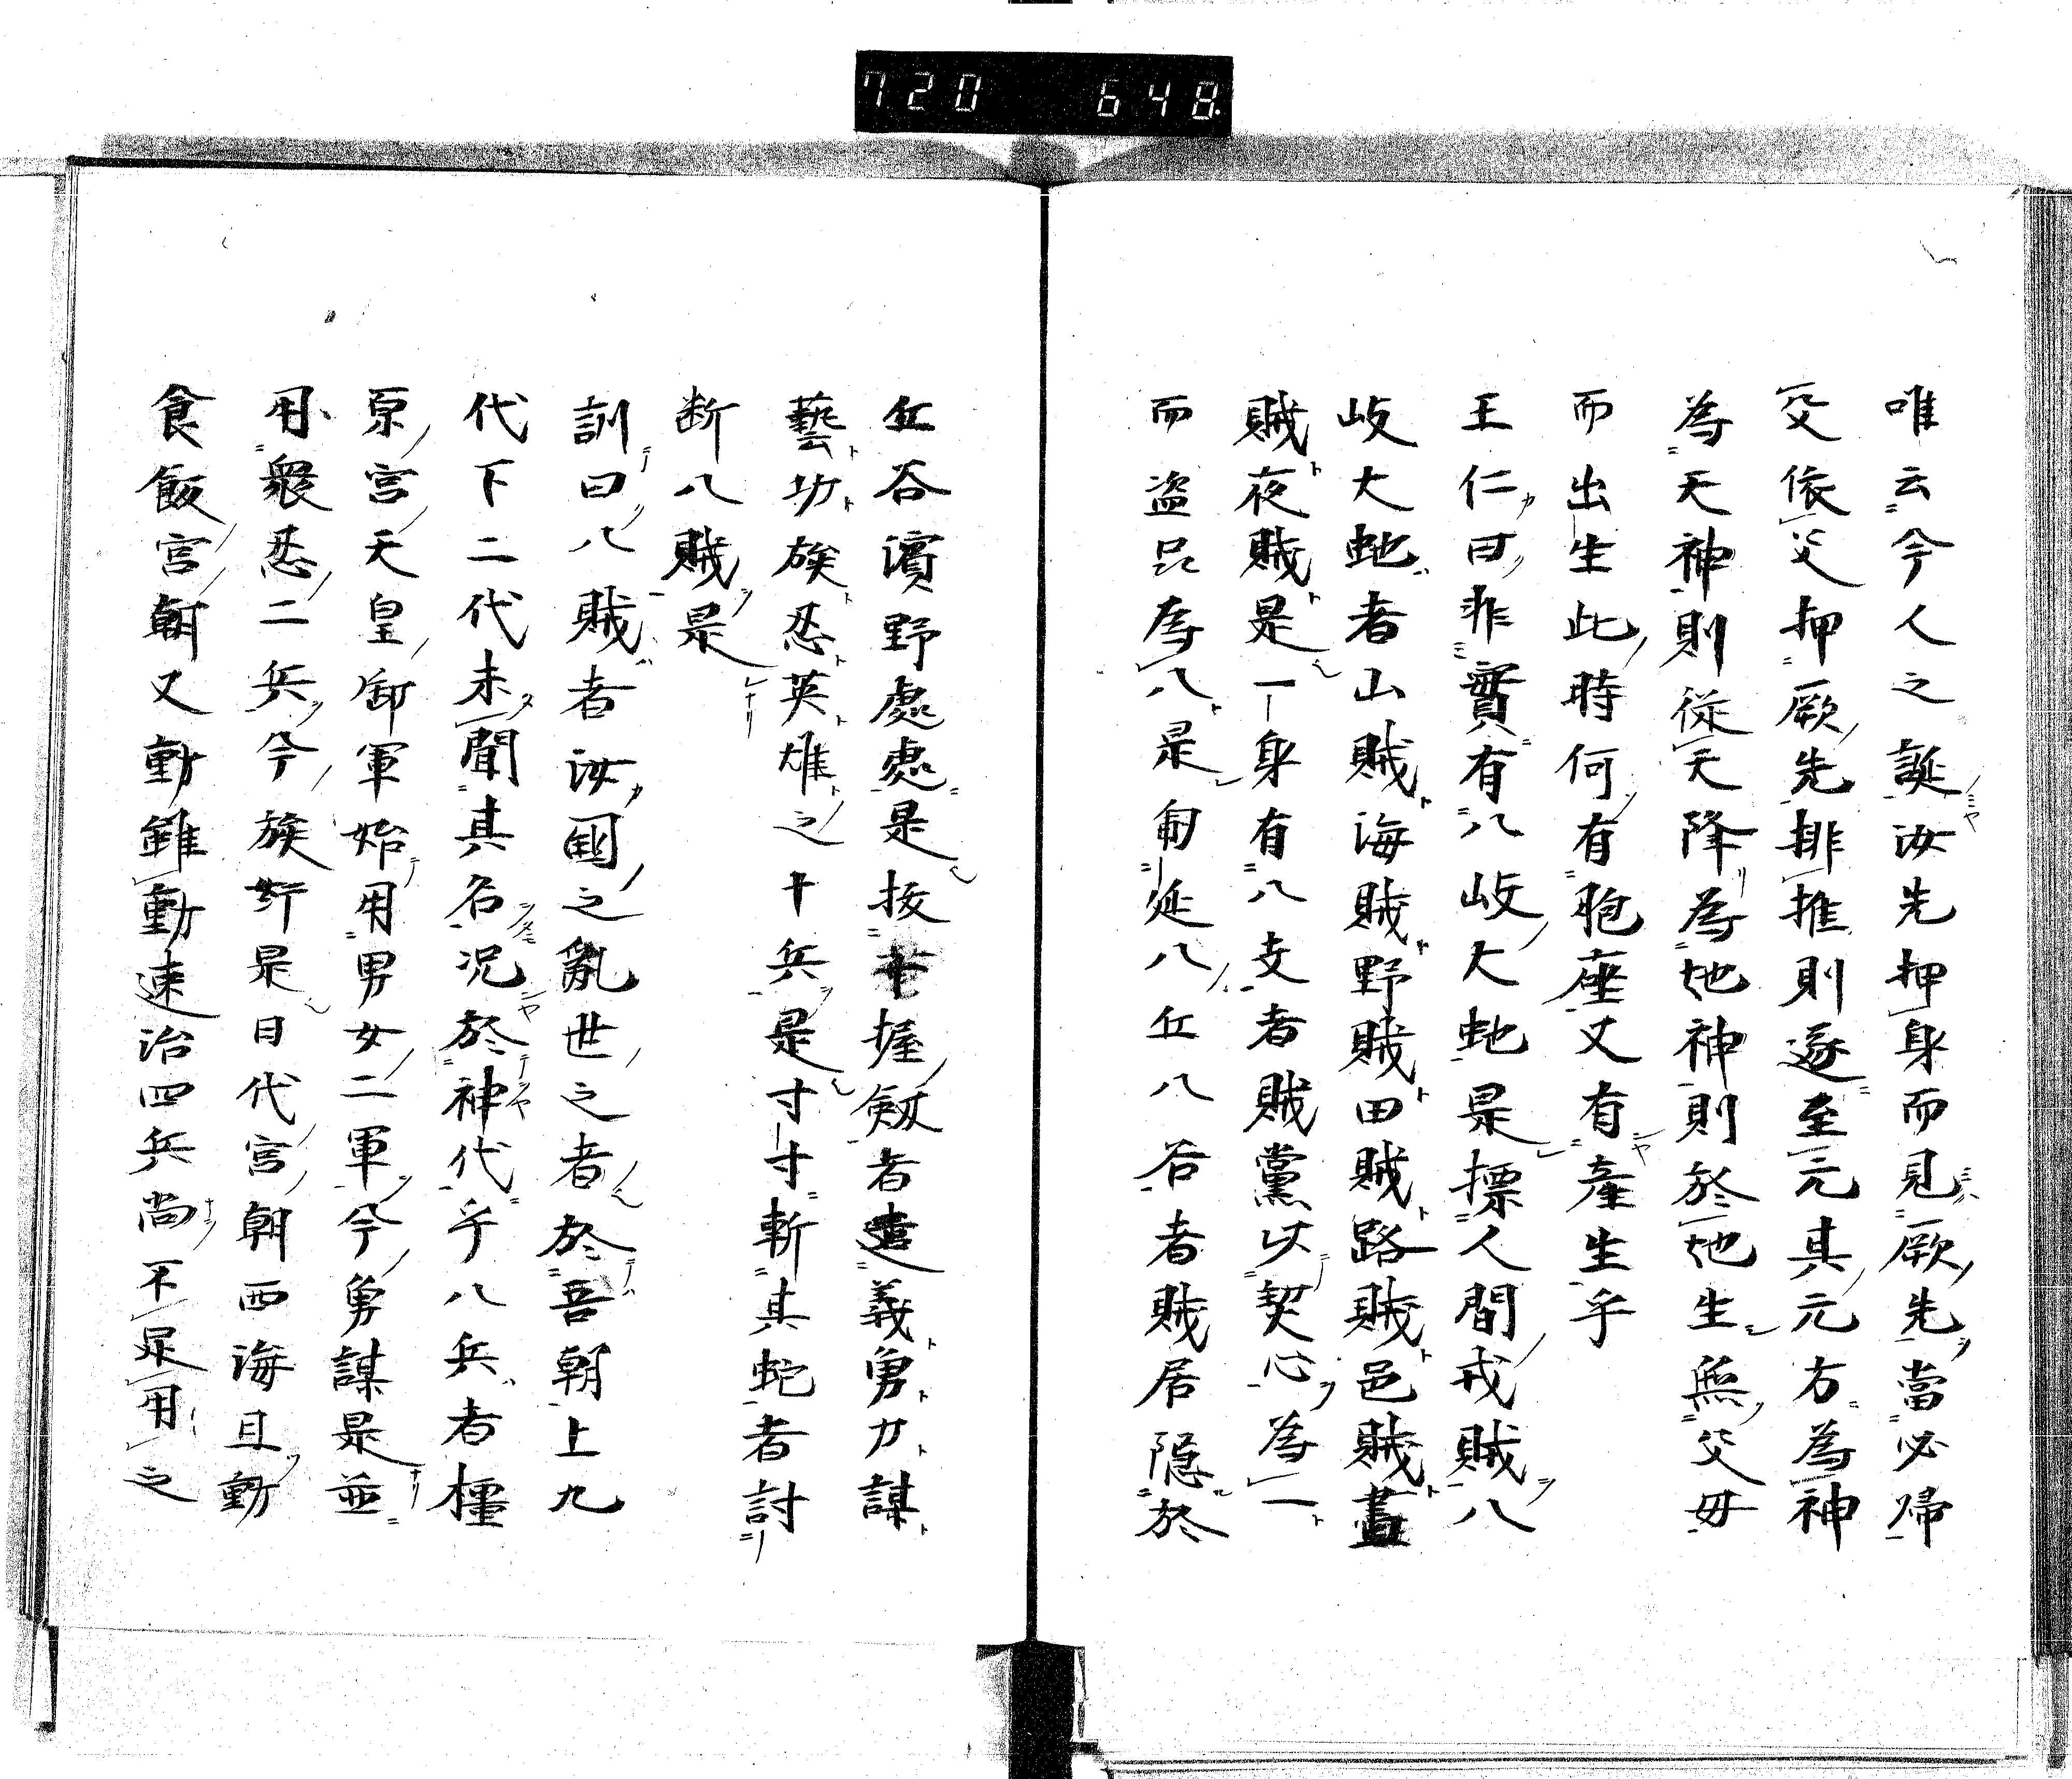 720 648
唯云今人之誕汝先押身而見厥先當必帰
父依父押厥先排推則逐至元其元方為神
為天神則従天降為地神則於地生無父毋
而出生此時何有胞座又有産生乎
王仁曰非實有八岐大虵是摽人間戎賊八
岐大虵者山賊海賊野賊田賊路賊邑賊晝
賊夜賊是一身有八支者賊黨以契心為一
而盗是為八是匍延八丘八谷者賊居隠於
丘谷濱野處處是按握劔者遣義勇力謀
藝功族忍英雄之十兵是寸寸斬其蛇者討
断八賊是
訓曰八賊者汝國之亂世之者於吾朝上九
代下二代未聞其名况於神代乎八兵者橿
原宮天皇御軍始用男女二軍今勇謀是並
用衆忍二兵今族是日代宮朝西海且動
食飯宮朝又動雖動速治四兵尚不足用之